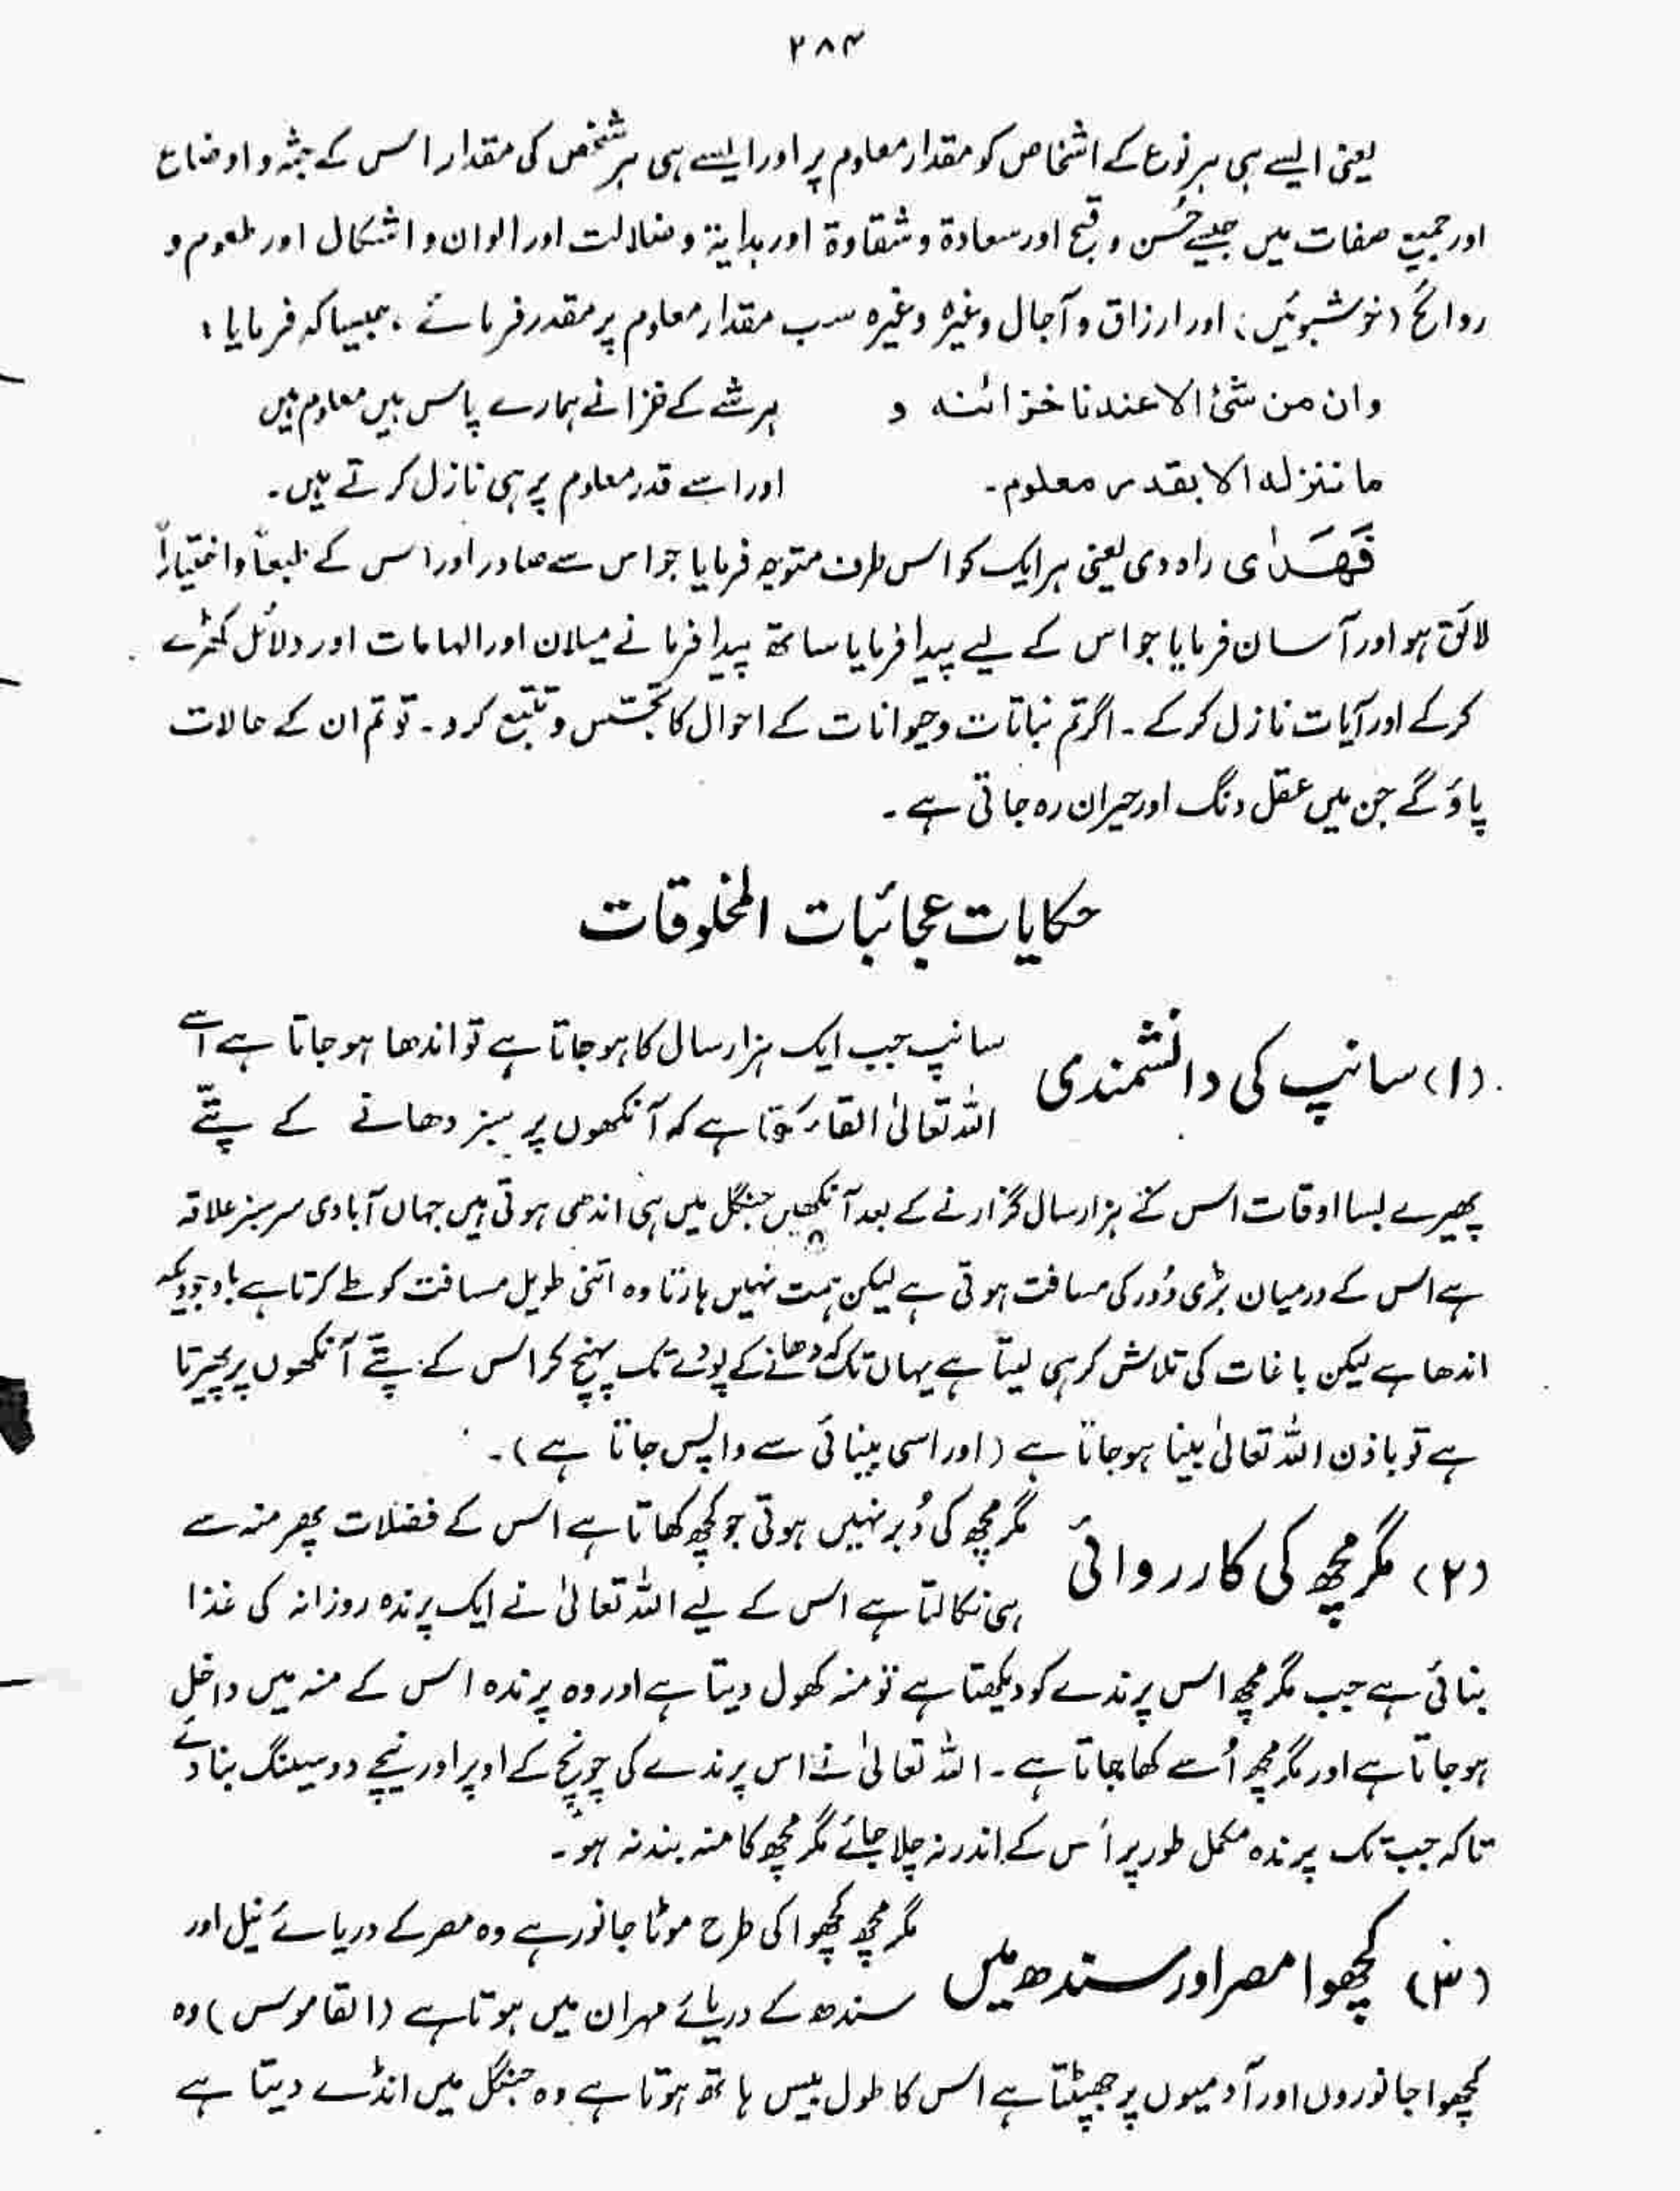 ۲۸۴
یعنی ایسے ہی ہر نوع کے اشخاص کو مقدار معلوم پر اور ایسے ہی ہر شخص کی مقدار اس کے جثہ و اوضاع
اور جمیع صفات میں جیسے حُسن و قبح اور سعادة و شقاوة اور ہدایة و ضلالت اور الوان و اشکال اور طعوم و
روائح (خوشبوئیں) اور ارزاق و آجال وغیرہ وغیرہ سب مقدار معلوم پر مقدر فرمائے ، جیسا کہ فرمایا :
وان من شئ الا عندنا خزائنه و
ہر شے کے خزانے ہمارے پاس ہیں معلوم ہیں
ما ننزله الا بقدر معلوم۔
اور اسے قدر معلوم پر ہی نازل کرتے ہیں۔
فَهَدٰى راہ دی یعنی ہر ایک کو اس طرف متوجہ فرمایا جو اس سے صادر اور اس کے طبعاً و اختیاراً
لائق ہو اور آسان فرمایا جو اس کے لیے پیدا فرمایا ساتھ پیدا فرمانے میلان اور الہامات اور دلائل کھڑے
کرکے اور آیات نازل کرکے ۔ اگر تم نباتات و حیوانات کے احوال کا تجسّس و تتبع کرو ۔ تو تم ان کے حالات
پاؤ گے جن میں عقل دنگ اور حیران رہ جاتی ہے ۔
حکایات عجائبات المخلوقات
(۱) سانپ کی دانشمندی
سانپ جب ایک ہزار سال کا ہو جاتا ہے تو اندھا ہو جاتا ہے اسے
اللہ تعالیٰ القاء کرتا ہے کہ آنکھوں پر سبز دھانے کے پتّے
پھیرے بسا اوقات اس کے ہزار سال گزارنے کے بعد آنکھیں جنگل میں ہی اندھی ہوتی ہیں جہاں آبادی سرسبز علاقہ
ہے اس کے درمیان بڑی دُور کی مسافت ہوتی ہے لیکن ہمت نہیں ہارتا وہ اتنی طویل مسافت کو طے کرتا ہے باوجودیکہ
اندھا ہے لیکن باغات کی تلاش کر ہی لیتا ہے یہاں تک کہ دھانے کے پودے تک پہنچ کر اس کے پتّے آنکھوں پر پھیرتا
ہے تو باذن اللہ تعالیٰ بینا ہو جاتا ہے (اور اسی بینائی سے واپس جاتا ہے)۔
(۲) مگرمچھ کی کارروائی
مگرمچھ کی دُبر نہیں ہوتی جو کچھ کھاتا ہے اس کے فضلات پھر منہ سے
ہی نکالتا ہے اس کے لیے اللہ تعالیٰ نے ایک پرندہ روزانہ کی غذا
بنائی ہے جب مگرمچھ اس پرندے کو دیکھتا ہے تو منہ کھول دیتا ہے اور وہ پرندہ اس کے منہ میں داخل
ہو جاتا ہے اور مگرمچھ اُسے کھا جاتا ہے ۔ اللہ تعالیٰ نے اس پرندے کی چونچ کے اوپر اور نیچے دو سینگ بنا دئے
تاکہ جب تک پرندہ مکمل طور پر اُس کے اندر نہ چلا جائے مگرمچھ کا منہ بند نہ ہو ۔
(۳) کچھوا مصر اور سندھ میں
مگرمچھ کچھوا کی طرح موٹا جانور ہے وہ مصر کے دریائے نیل اور
سندھ کے دریائے مہران میں ہوتا ہے (القاموس) وہ
کچھوا جانوروں اور آدمیوں پر جھپٹتا ہے اس کا طول بیس ہاتھ ہوتا ہے وہ جنگل میں انڈے دیتا ہے